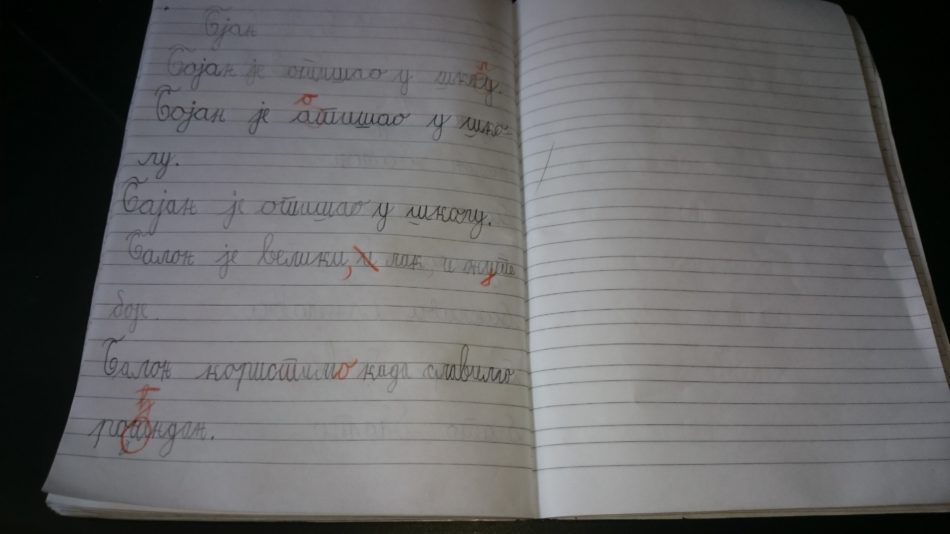 Бјан
Бојан је отишао у школу.
Бојан је отишао у шко-
лу.
Бојан је отишао у школу.
Балон је велики, и лак, и жуте
боје.
Балон користимо када славимо
рођендан.